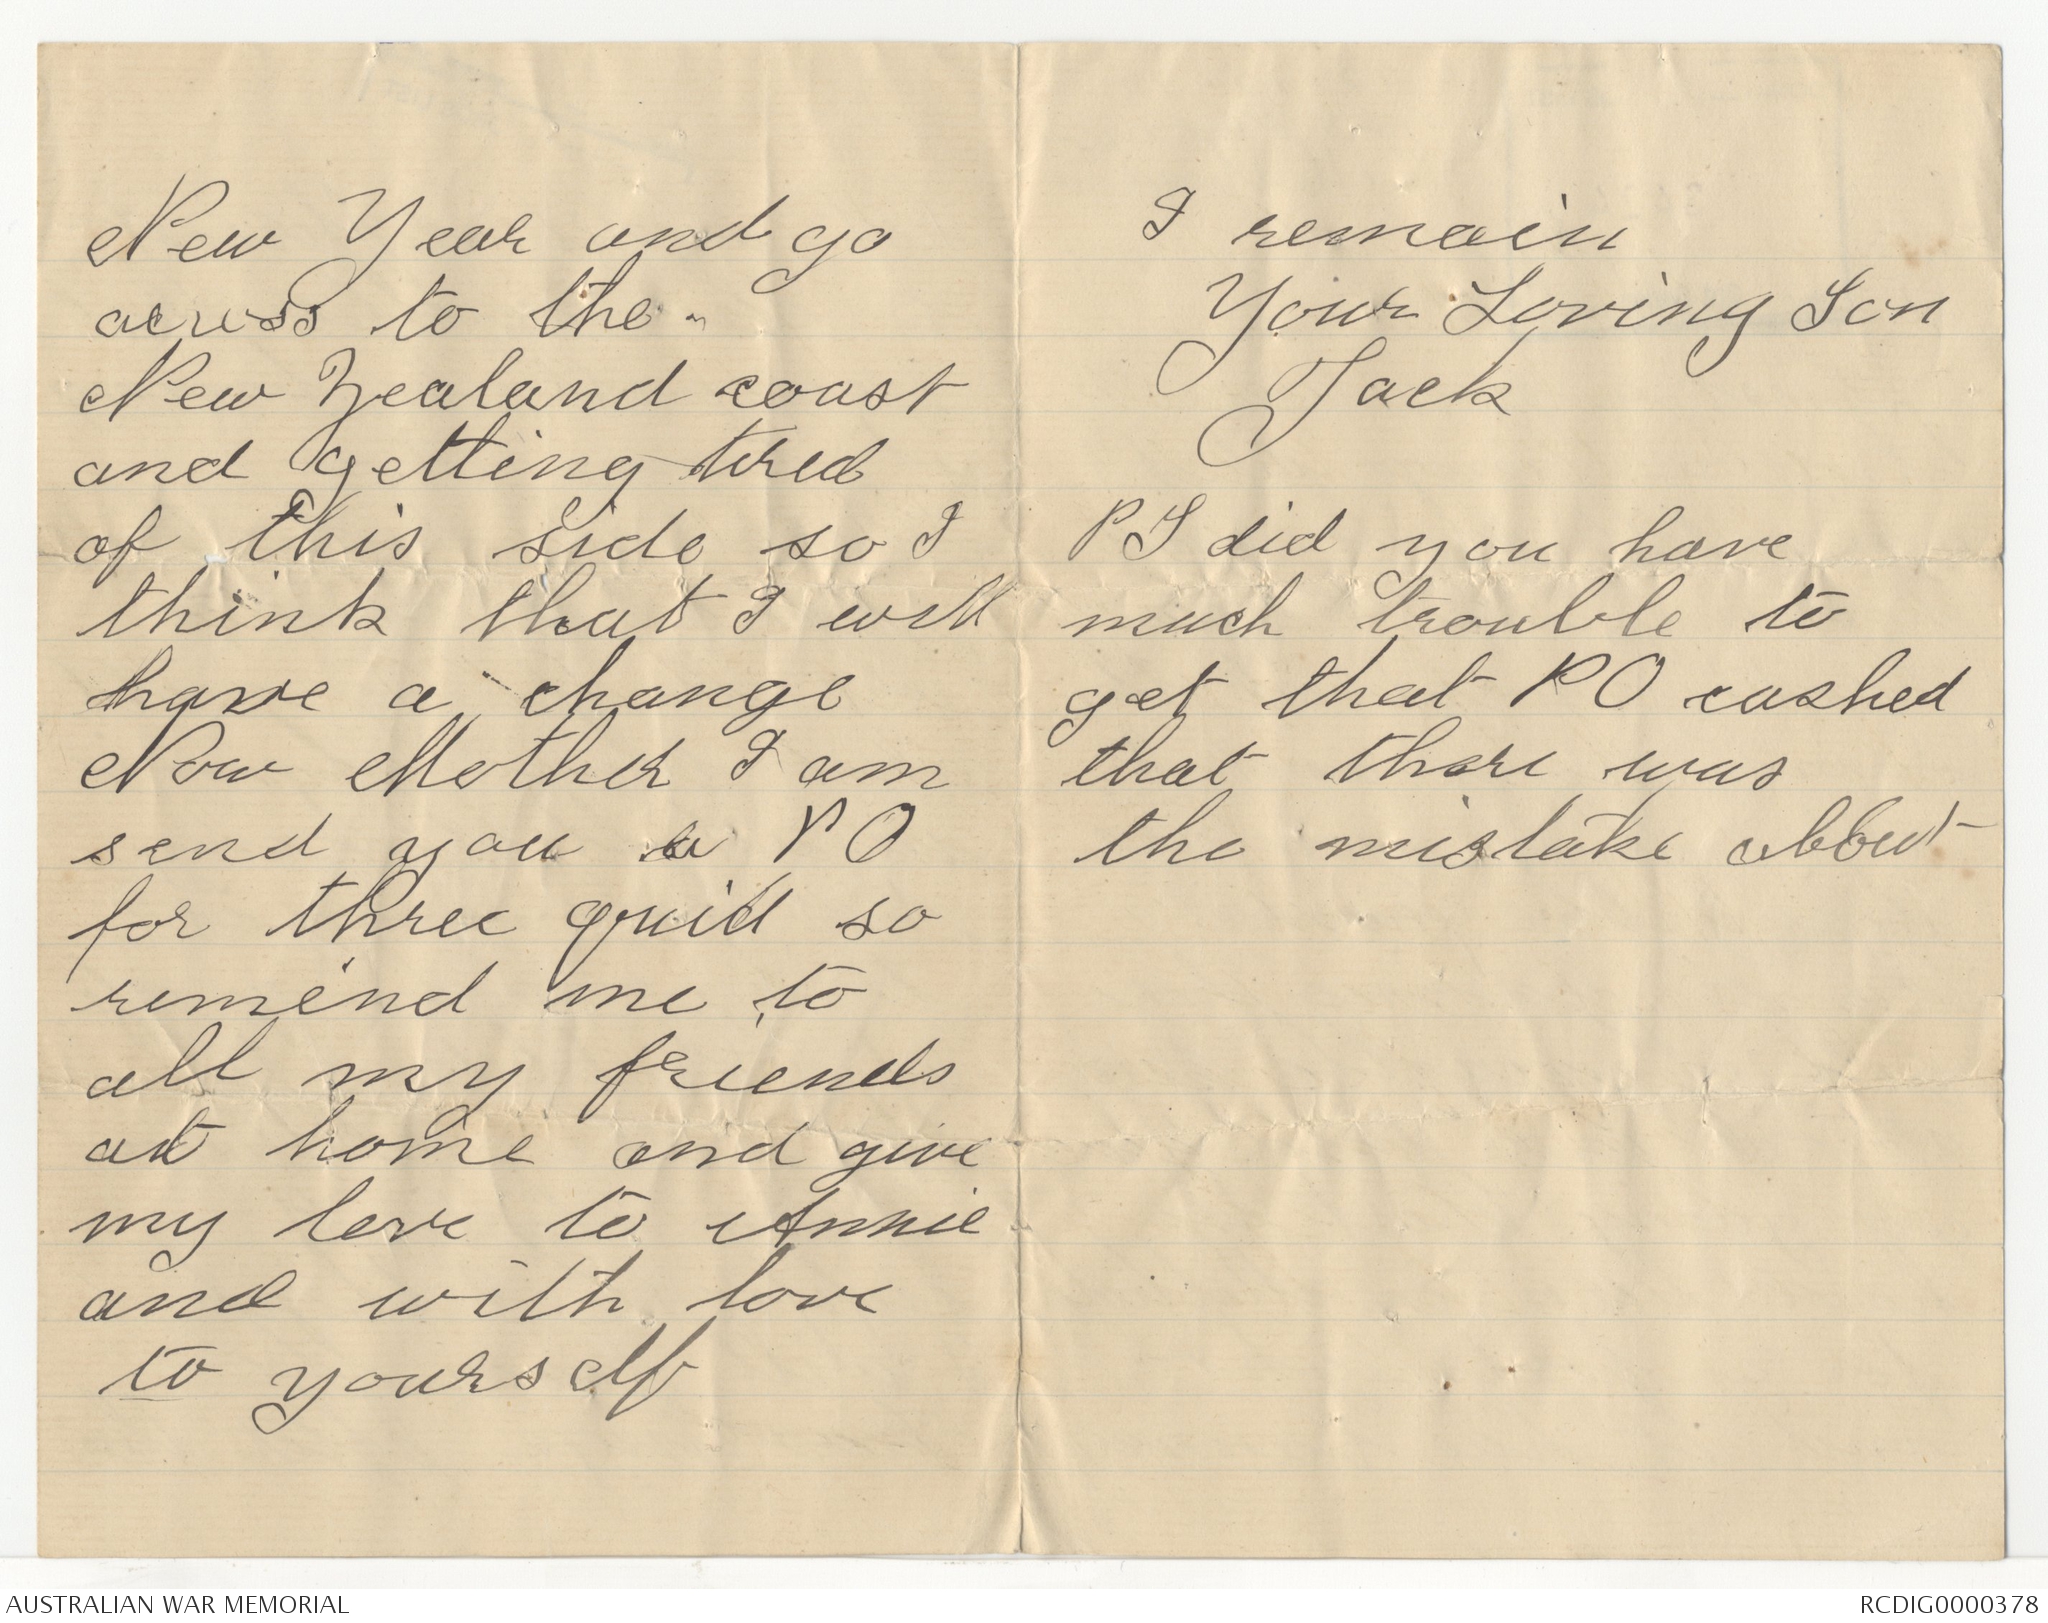 New Year and go
across to the
New Zealand coast
and getting tired
of this side so I
think that I will
have a change
Now Mother I am
send you a PO
for three quid so
remind me to
all my friends
at home and give
my love to Annie
and with love
to yourself
I remain
Your Loving Son
Jack
PS did you have
much trouble to
get that PO cashed
that there was
the mistake about
AUSTRALIAN WAR MEMORIAL
RCDIG0000378